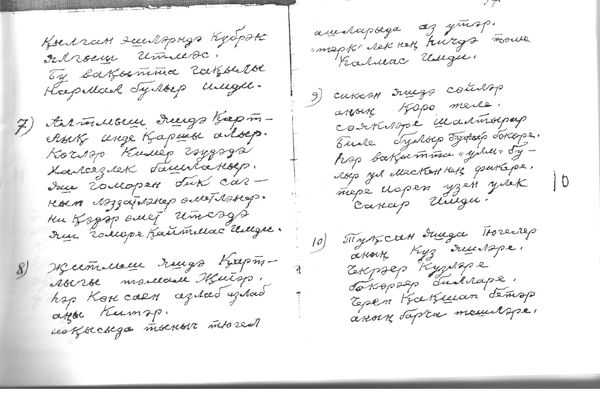 Қылған эшләрндә күбрәк
ялғыш итмәс.
Бу вақытта гақылы
нармал булыр имди.
7) Алтмыш яшдә қарт-
лық инде қаршы алыр.
Көчләр кимер гәүдәдә
хәлсезлек башланыр.
яш гомерен бик сағ-
нып ләззәтләнер өметләнер.
ни қәдәр өмет итсәдә
яш гомере қайтмас имди.
8) Җитмеш яшдә қарт-
лығы тәмам җитәр.
һәр көн саен азлаб азлаб
аңы китәр.
йоқысыда тыныч түгел
ашларыда аз үтәр.
"төрк" лек нең ничдә тәме
калмас имди.
9) сиксән яшдә сөйләр
аның қоро теле.
сөякләре шалтырар
биле булыр бөкере.
һәр вақытта "үлем" бу-
лыр ул мескеннең фикере.
тере йөреп үзен үлек
санар имди.
10
10) Туқсан яшдә түгелер
аның күз яшләре.
чекрәер күзләре
бөкерәер билләре.
череп қақшап бетәр
аның барча тешләре.